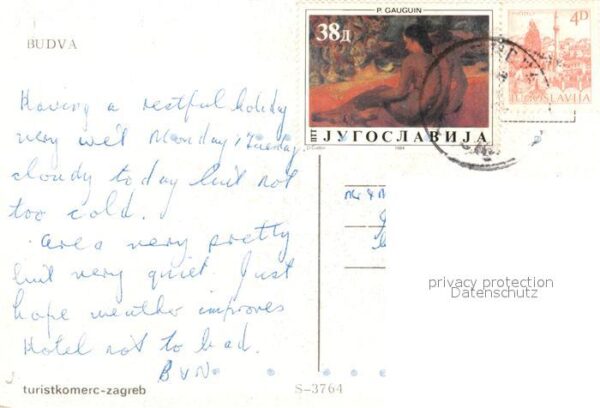 BUDVA
Having a restful holiday
very wet Monday, Tuesday
cloudy today but not
too cold.
Area very pretty
but very quiet. Just
hope weather improves
Hotel not to bad.
BVN
turistkomerc-zagreb
S-3764
P. GAUGUIN
38д
ПТТ ЈУГОСЛАВИЈА
1984
4D
JUGOSLAVIJA
privacy protection
Datenschutz